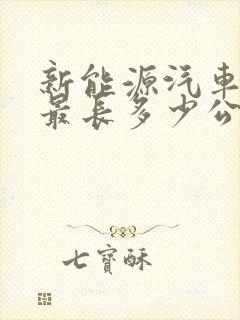 新能源汽車
最長多少公
七寶酥